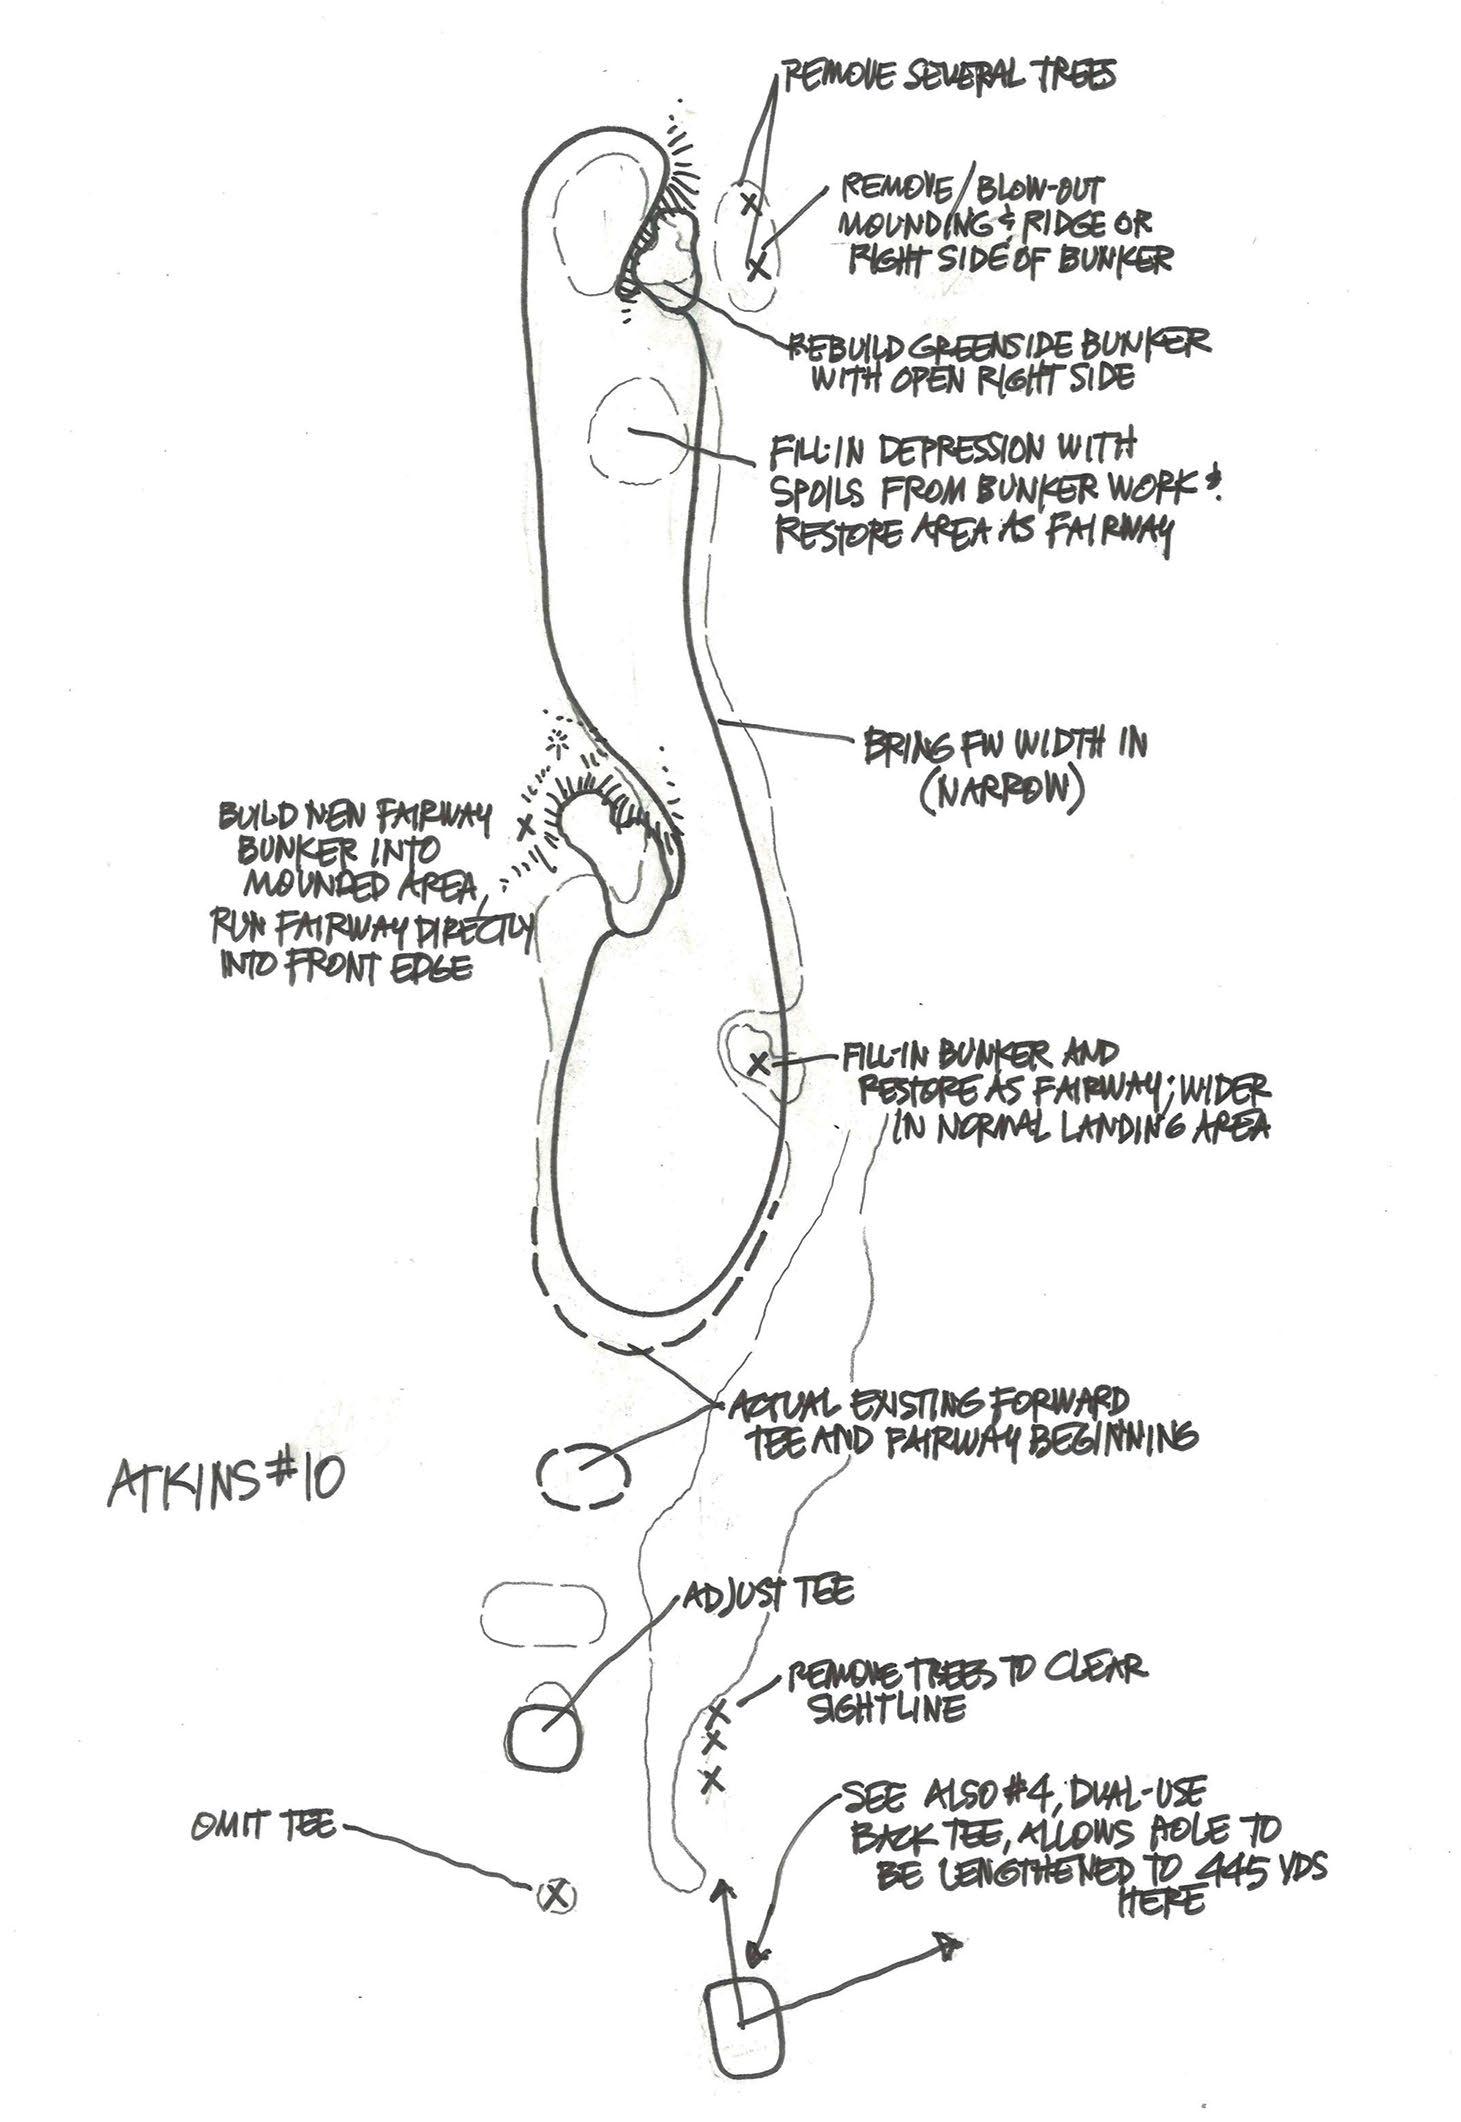 REMOVE SEVERAL TREES
REMOVE/BLOW-OUT
MOUNDING & RIDGE OR
RIGHT SIDE OF BUNKER
REBUILD GREENSIDE BUNKER
WITH OPEN RIGHT SIDE
FILL-IN DEPRESSION WITH
SPOILS FROM BUNKER WORK &
RESTORE AREA AS FAIRWAY
BRING FW WIDTH IN
(NARROW)
BUILD NEW FAIRWAY
BUNKER INTO
MOUNDED AREA,
RUN FAIRWAY DIRECTLY
INTO FRONT EDGE
FILL-IN BUNKER AND
RESTORE AS FAIRWAY; WIDER
IN NORMAL LANDING AREA
ACTUAL EXISTING FORWARD
TEE AND FAIRWAY BEGINNING
ATKINS #10
ADJUST TEE
REMOVE TREES TO CLEAR
SIGHTLINE
OMIT TEE
SEE ALSO #4, DUAL-USE
BACK TEE, ALLOWS HOLE TO
BE LENGTHENED TO 445 YDS
HERE